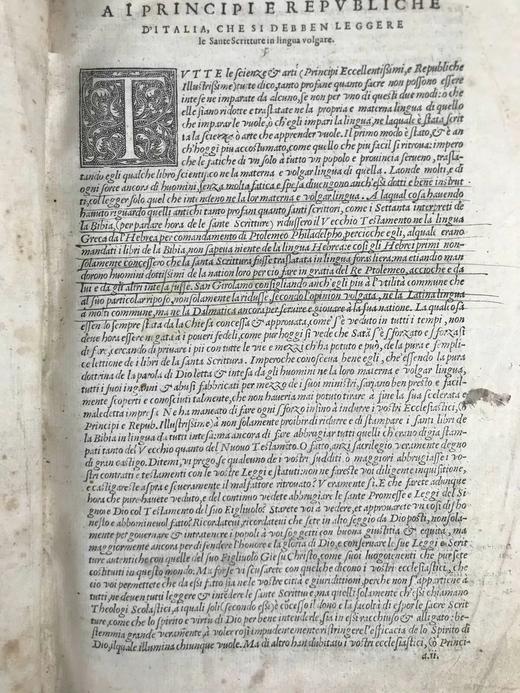 A I PRINCIPI E REPVBLICHE
D'ITALIA, CHE SI DEBBEN LEGGERE
le Sante Scritture in lingua volgare.
TVTTE le scienze & arti (Principi Eccellentissimi, e Republiche
Illustrissime) tutte dico, tanto profane quanto sacre non possono essere
intese ne imparate da alcuno, se non per vno di questi due modi: o che
elle siano ridotte e traslatate ne la propria e materna lingua di quello
che imparar le vuole, o ch'egli impari la lingua, ne laquale è stata scrit
ta la scienza o arte che apprender vuole. Il primo modo è stato, & è an
ch'hoggi piu accostumato, come quello che piu facil si ritroua: impero
che le fatiche di un solo à tutto vn popolo e prouincia seruono, trasla-
tando egli qualche libro scientifico ne la materna e volgar lingua di quella. Laonde molti, e di
ogni sorte ancora di huomini, senza molta fatica e spesa diuengono anch'essi dotti e bene instrut
ti, col legger solo quel che intendeno ne la lor materna e volgar lingua. A laqual cosa hauendo
hauuto riguardo quelli antichi tanto profani quanto santi scrittori, come i Settanta interpreti de
la Bibia, (per parlare hora de le sante Scritture) ridussero il Vecchio Testamento ne la lingua
Greca da l'Hebrea per comandamento di Ptolemeo Philadelpho, percioche egli, alquale erano
mandati i libri de la Bibia, non sapeua niente de la lingua Hebrea: e cosi gli Hebrei primi non-
solamente concessero che la santa Scrittura fusse traslatata in lingua forastiera: ma etiandio man
dorono huomini dottissimi de la nation loro per cio fare in gratia del Re Ptolemeo, accioche e da
lui e da gli altri intesa fusse. San Girolamo consigliando anch'egli piu à l'vtilità commune che
al suo particolar riposo, non solamente la ridusse, secondo l'opinion volgata, ne la Latina lingua
a molti commune, ma ne la Dalmatica ancora per seruire e giouare à la sua natione. La qual cosa
essendo sempre stata da la Chiesa concessa & approuata, come s'è veduto in tutti i tempi, non
deue hora essere negata à i poueri fedeli, come pur hoggi si vede che Satà s'è sforzato e sforzasi
di fare, cercando di priuare i piu con tutte le vie e mezzi ch'ha potuto e può, de la pura e sempli-
ce lettione de i libri de la santa Scrittura. Imperoche conosceua bene egli, ch'essendo la pura
dottrina de la parola di Dio letta & intesa da gli huomini ne la lor materna e volgar lingua,
tutti i suoi inganni & abusi fabbricati per mezzo de i suoi ministri, sarano ben presto e facil-
mente scoperti e conosciuti talmente, che non haueria mai potuto tirare à fine la sua scelerata e
maledetta impresa. Ne ha mancato di fare ogni sforzo insino à indurre i vostri Ecclesiastici, (o
Principi e Repub. Illustrissime) à non solamente proibir di ridurre e di stampare i santi libri de
la Bibia in lingua da tutti intesa: ma ancora di fare abbrugiar tutti quelli ch'erano di gia stam-
pati tanto del Vecchio quanto del Nuouo Testamento. O fatto, anzi sacrilegio veramente degno
di gran castigo. Ditemi, vi prego, se qualcuno de i vostri sudditi o maggiori abbrugiasse i vo-
stri contratti e testamenti con le vostre Leggi e statuti: non ne fareste voi diligente inquisitione,
e castigareste aspra e seueramente il malfattore ritrouato? Veramente si. E che farete adunque
hora che pur hauete veduto, e del continuo vedete abbrugiare le sante Promesse e Leggi del Si-
gnore e Dio col Testamento del suo Figliuolo? Starete voi a vedere, et approuarete vn cosi disho
nesto e abbomineuol fatto? Ricordateui, ricordateui che sete in alto seggio da Dio posti, non sola-
mente per gouernare & intratenere i popoli à voi soggetti con buona giustitia & equità, ma
maggiormente ancora per difendere l'honore e la gloria di Dio, e conseruare le sue Leggi e Scrit-
ture autentiche con quelle del suo Figliuolo Giesu Christo, come suoi luogotenenti che pur sete
costituiti in questo mondo. Ma forse vi scusarete con quelche dicono i vostri ecclesiastici, che
cio voi permettete che da essi fatto sia ne le vostre citta e giuriditioni, perche non s'appartiene à
tutti, ne deuen tutti leggere & intédere le sante Scritture, ma quelli solamente ch'essi chiamano
Theologi Scolastici, a i quali soli (secondo essi) è cócesso il dono e la facoltà di espor le sacre Scrit
ture, come che lo spirito e virtu di Dio per bene intenderle, sia in essi racchiuso & alligato: be-
stemmia grande veramente, à voler cosi impudentemente ristringere l'efficacia de lo Spirito di
Dio, ilquale illumina chiunque vuole. Ma di altro han dubitato i vostri ecclesiastici, (o Princi-
a.ii.